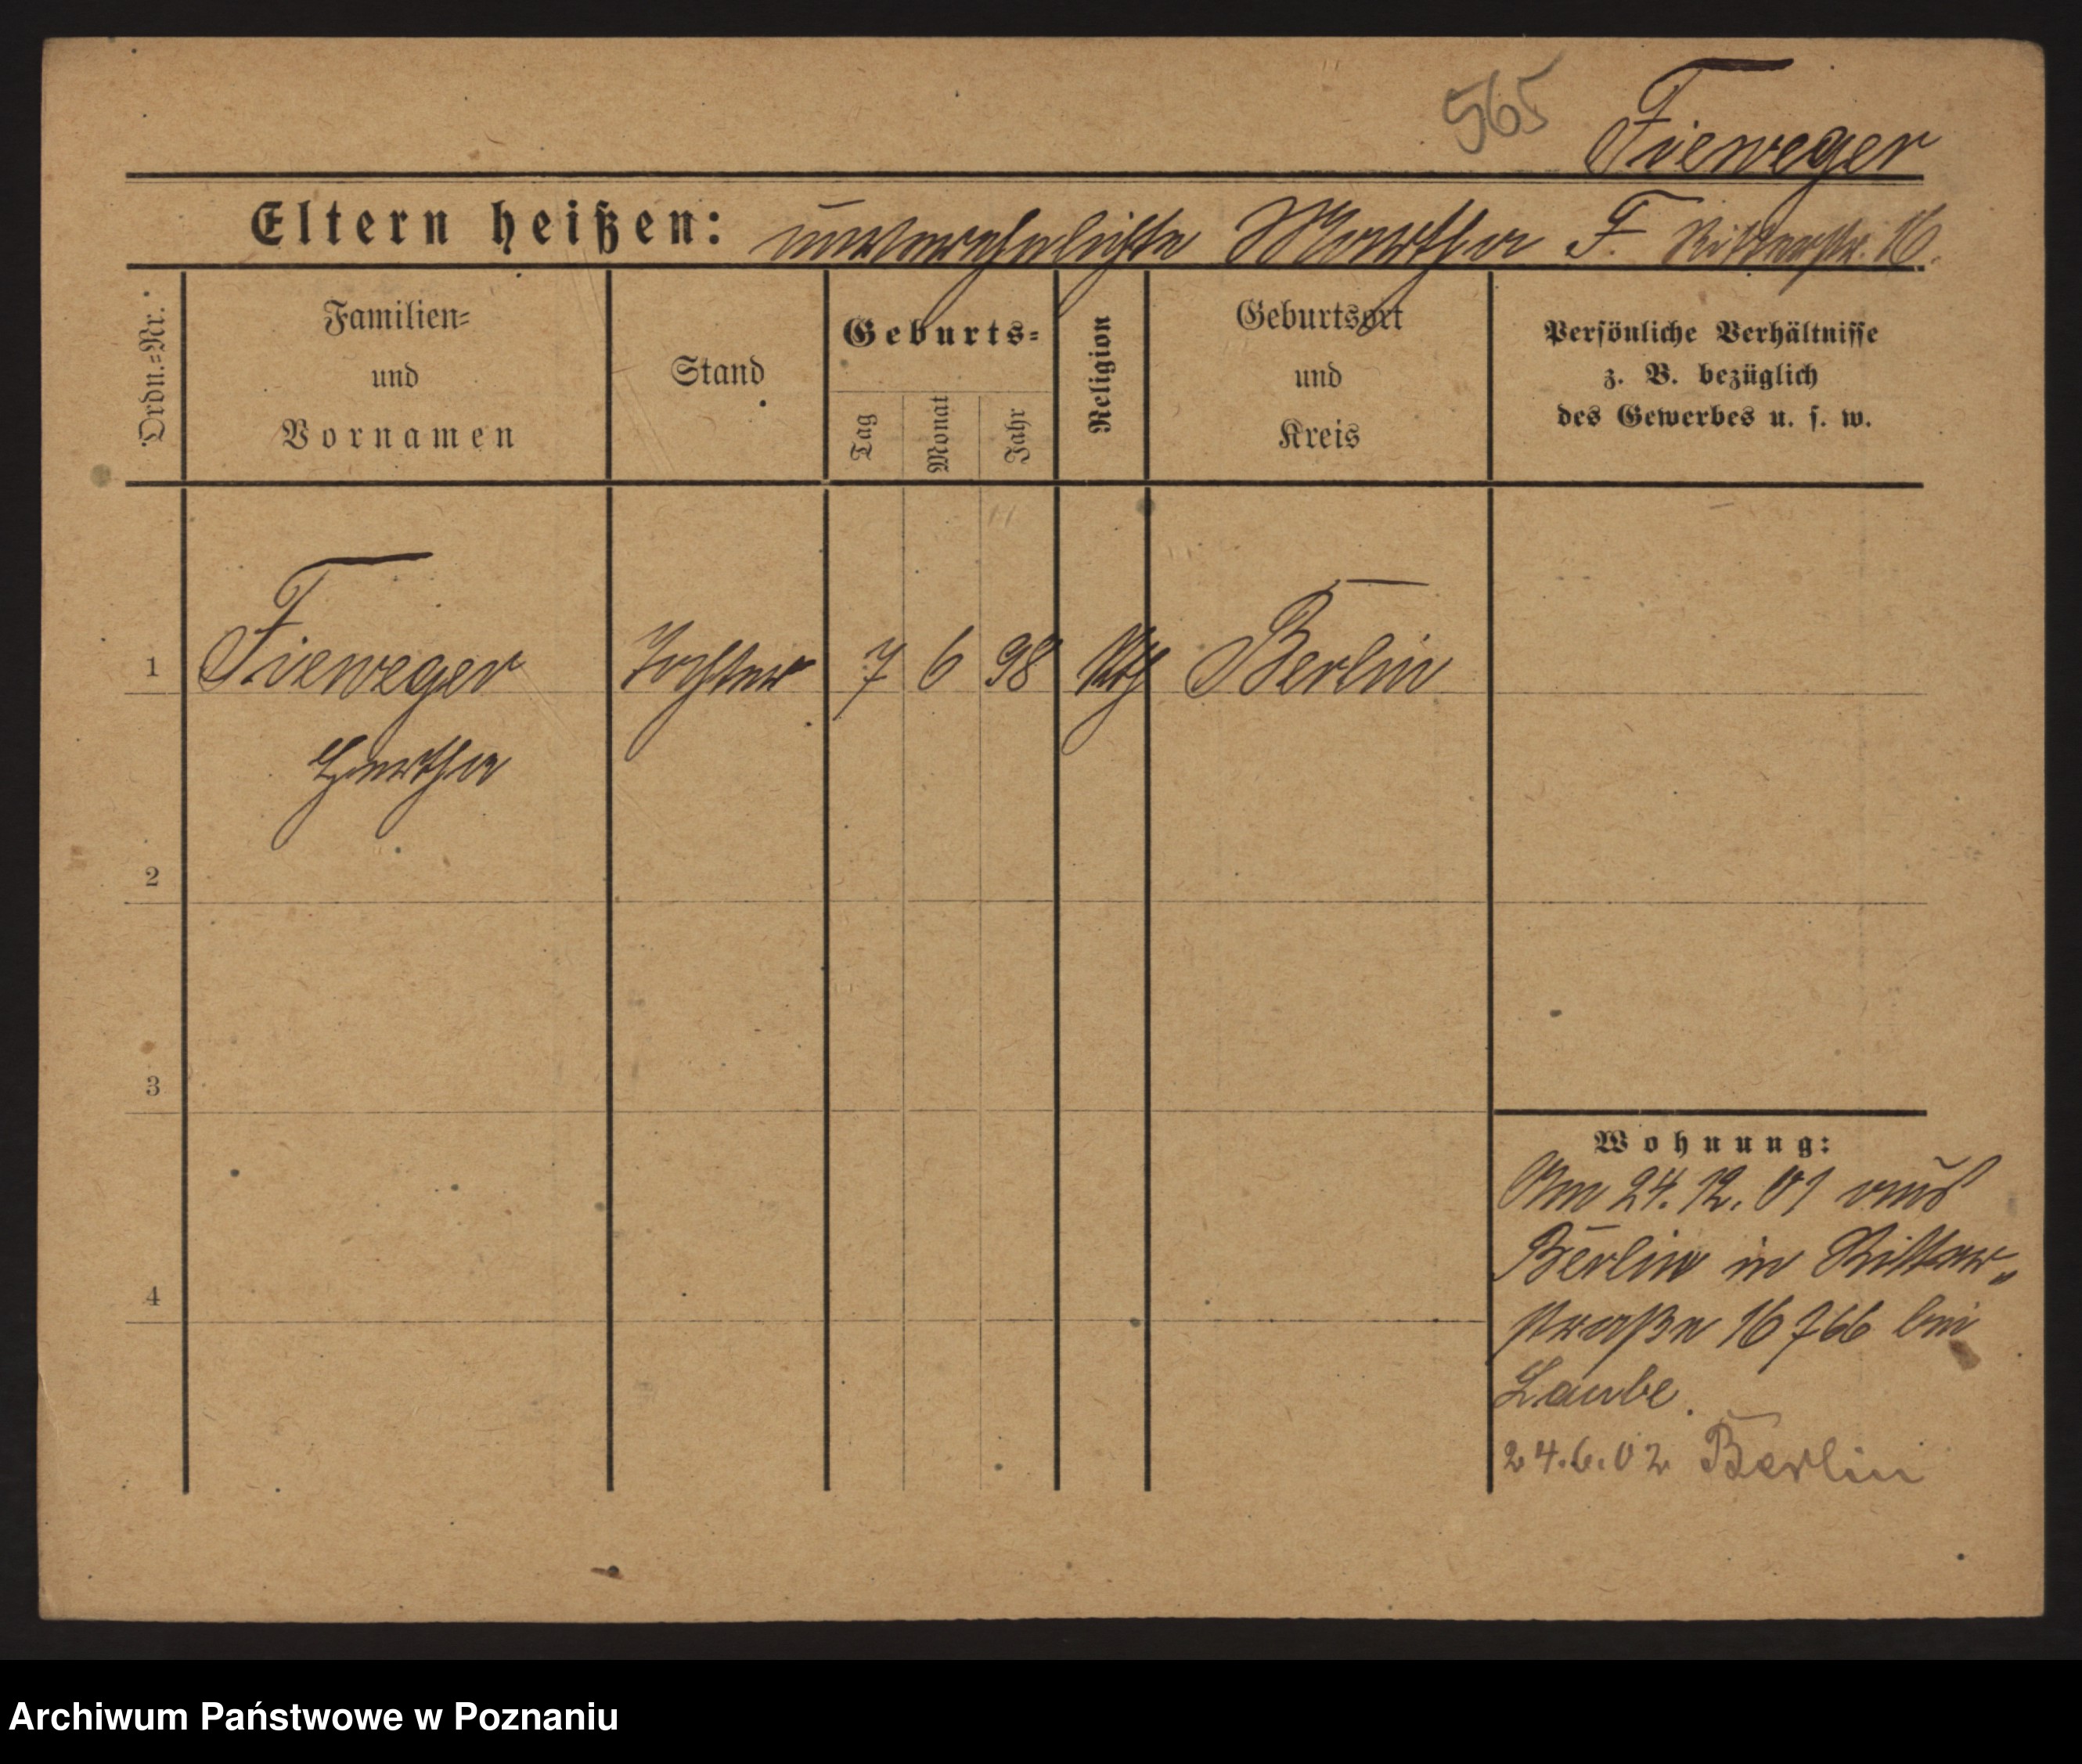 565 Fieweger
Eltern heißen: unverehelichte Martha F. Ritterstr. 16.
Ordn.=Nr.
Familien=
und
Vornamen
Stand
Geburts=
Tag
Monat
Jahr
Religion
Geburtsort
und
Kreis
Persönliche Verhältnisse
z. B. bezüglich
des Gewerbes u. s. w.
1 Fieweger Tochter 7 6 98 kth Berlin
Hertha
2
3
4
Wohnung:
Am 24.12.01 aus
Berlin in Ritter„
straße 16 766 bei
Laube.
24.6.02 Berlin
Archiwum Państwowe w Poznaniu